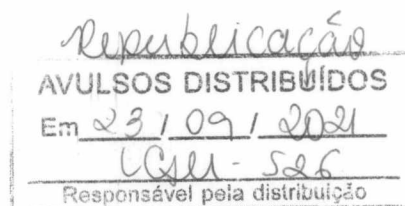 Republicação
AVULSOS DISTRIBUÍDOS
Em 23 / 09 / 2021
- 526
Responsável pela distribuição